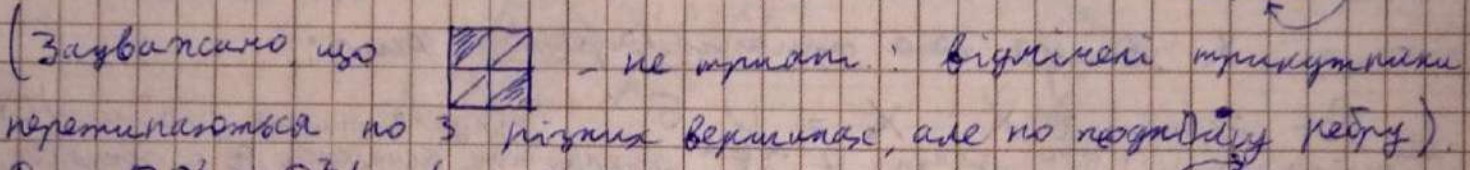 (Зауважимо, що - не триан.: відмічені трикутники
перетинаються по 3 різних вершинах, але по жодному ребру).